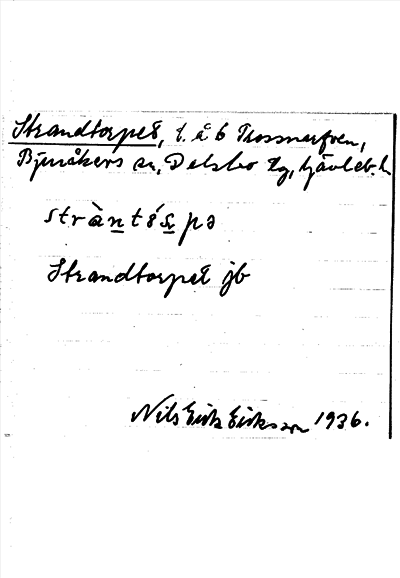 Strandtorpet, t. å 6 Trossnarfven,
Bjuråkers sn, Delsbo tg, Gävleb. l.
stràntó̀s̲pə
Strandtorpet jb
Nils Erik Eriksson 1936.